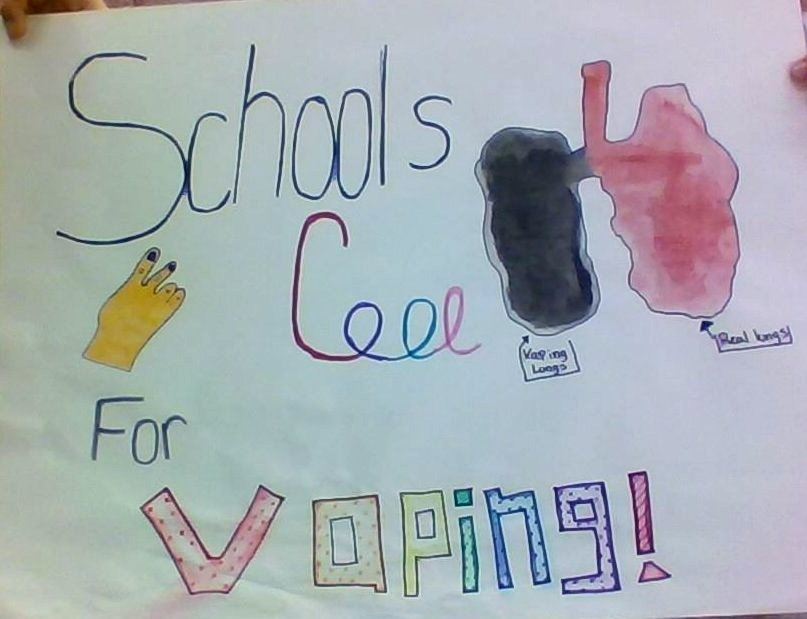 Schools
Cool
Vaping
Lungs
Real lungs!
For
Vaping!